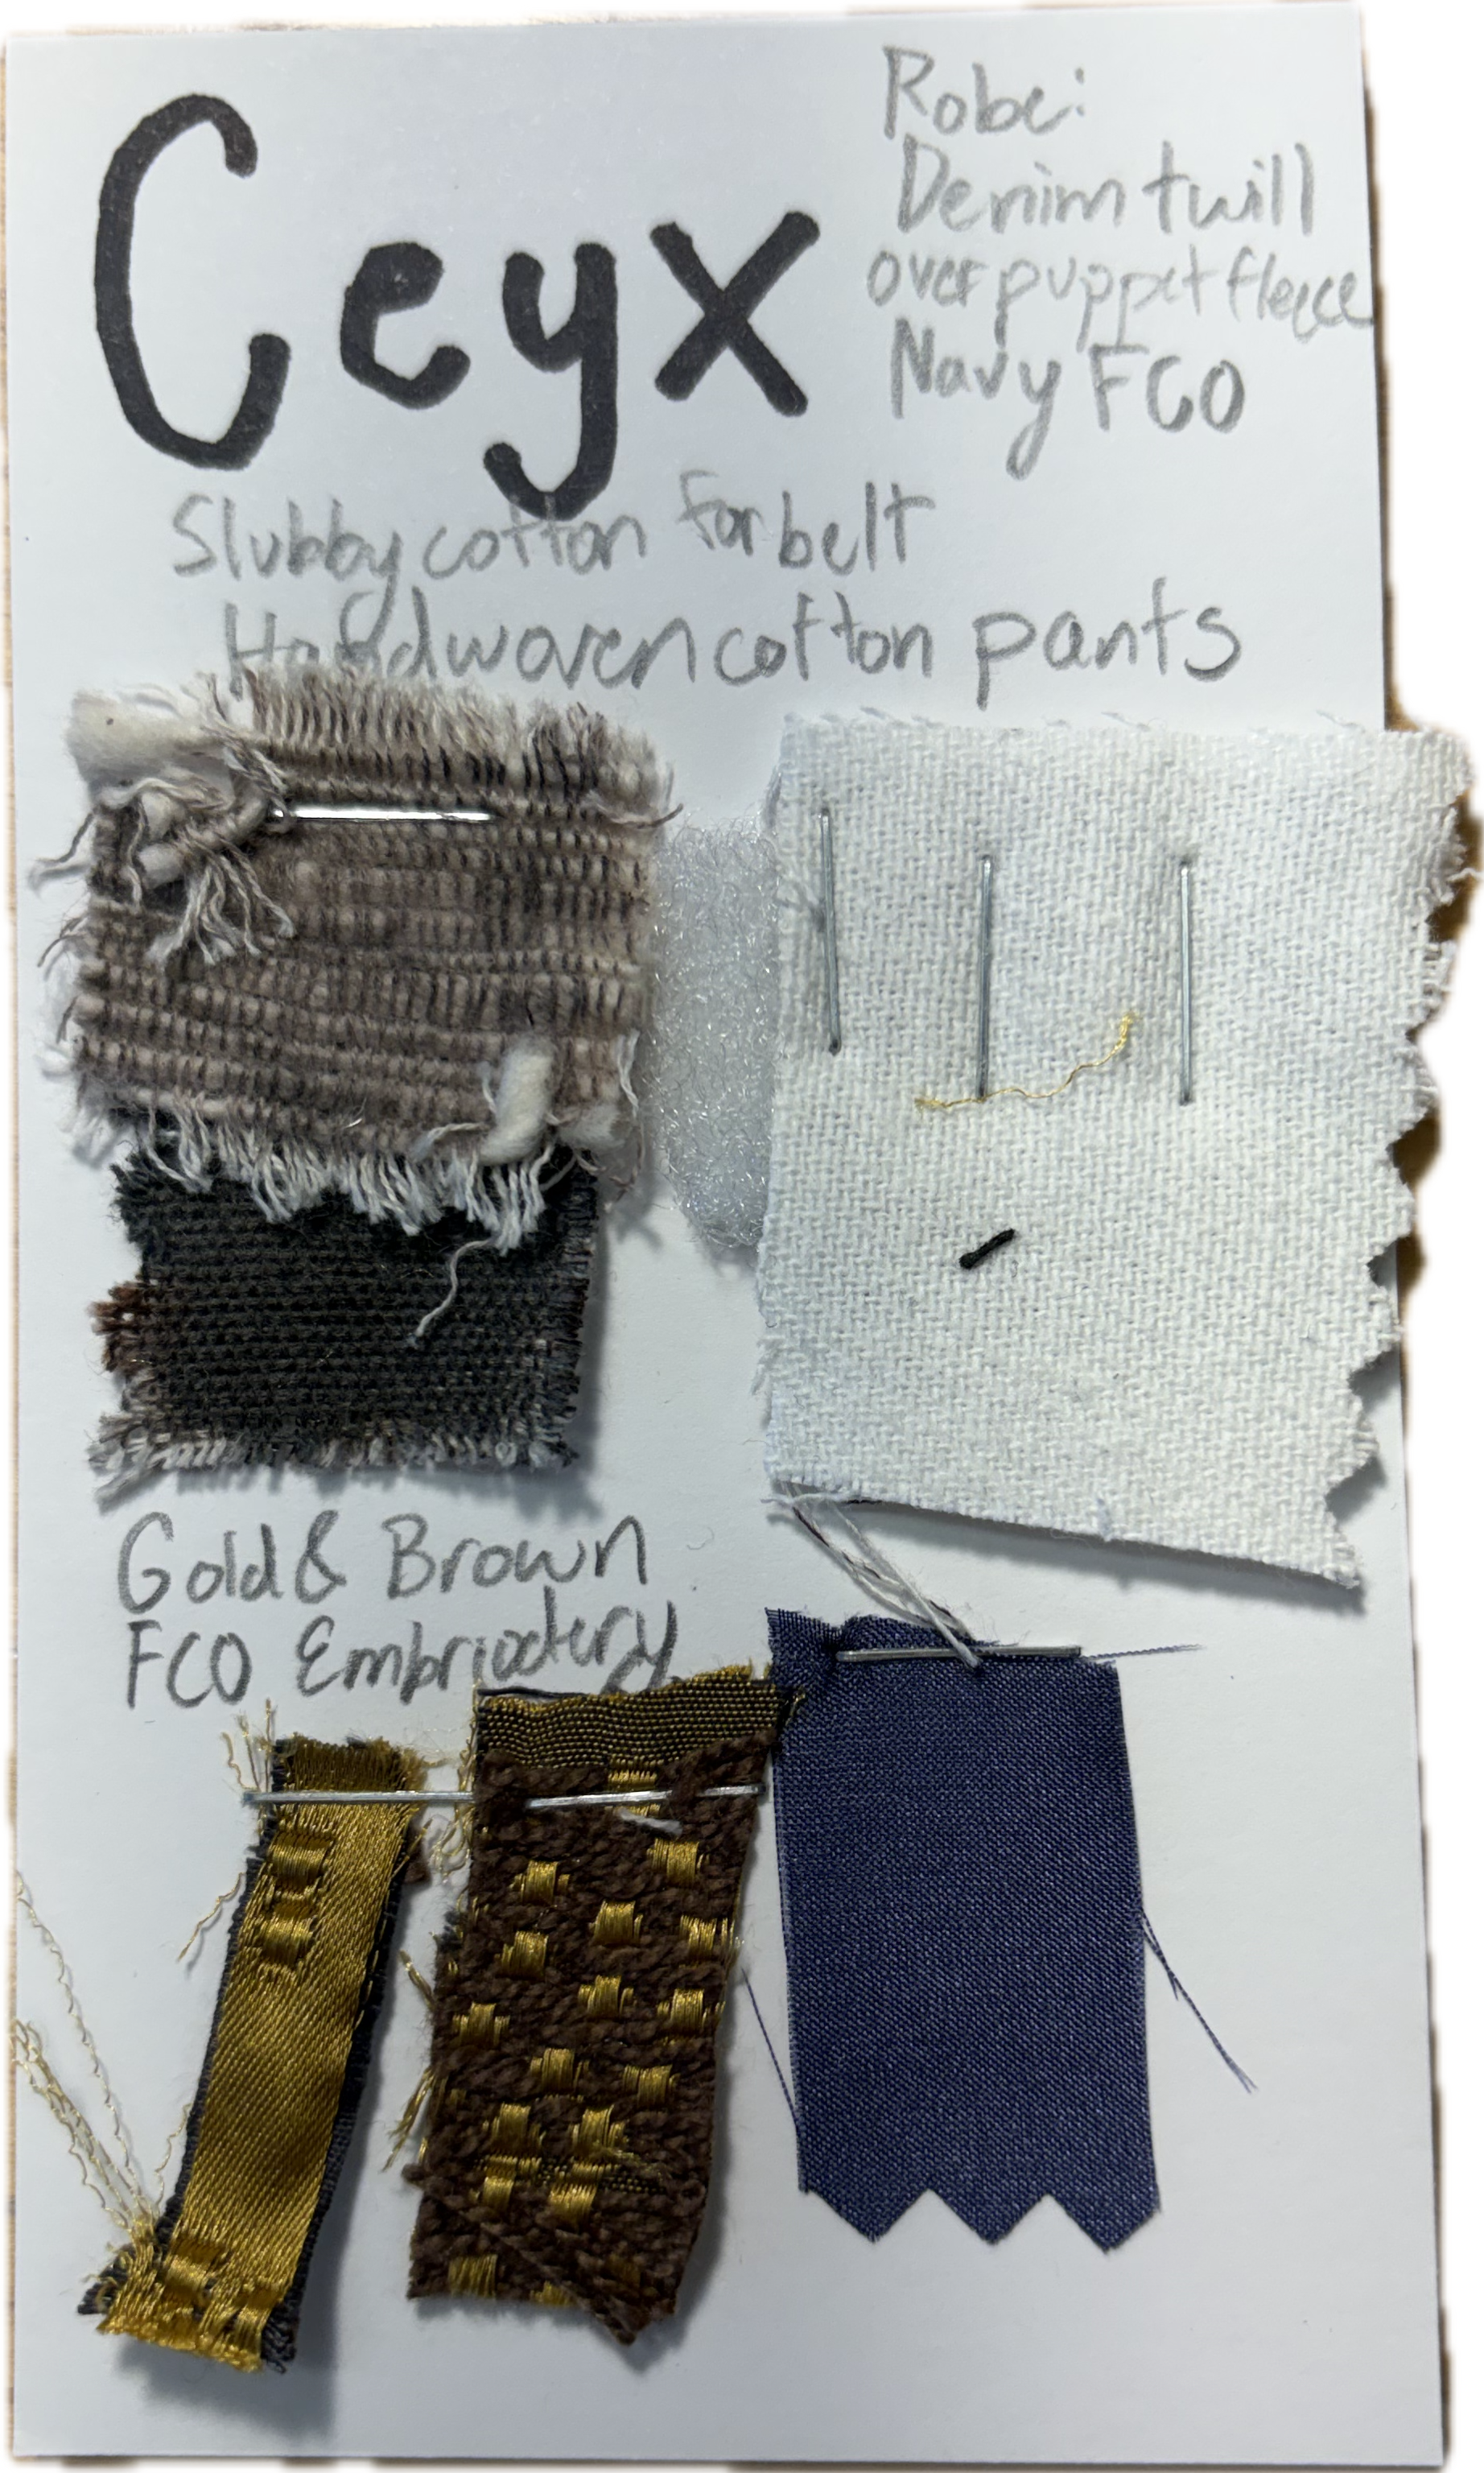 Ceyx
Robe:
Denim twill
over puppet fleece
Navy FCO
Slubby cotton for belt
Handwoven cotton pants
Gold & Brown
FCO Embriodery